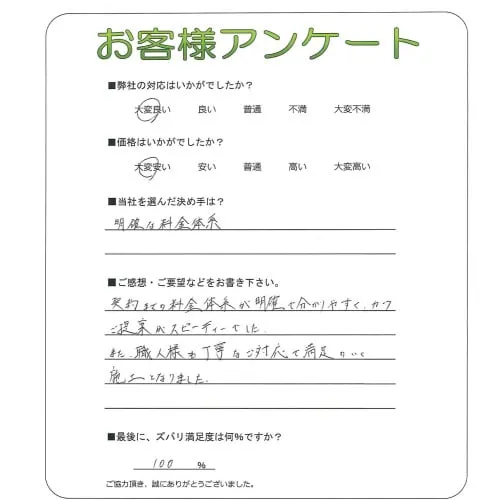 お客様アンケート
■弊社の対応はいかがでしたか?
大変良い 良い 普通 不満 大変不満
■価格はいかがでしたか?
大変安い 安い 普通 高い 大変高い
■当社を選んだ決め手は?
明確な料金体系
■ご感想・ご要望などをお書き下さい。
契約までの料金体系が明確で分かりやすく、かつ
ご提案がスピーディーでした。
また、職人様も丁寧なご対応で満足のいく
施工となりました。
■最後に、ズバリ満足度は何%ですか?
100 %
ご協力頂き、誠にありがとうございました。